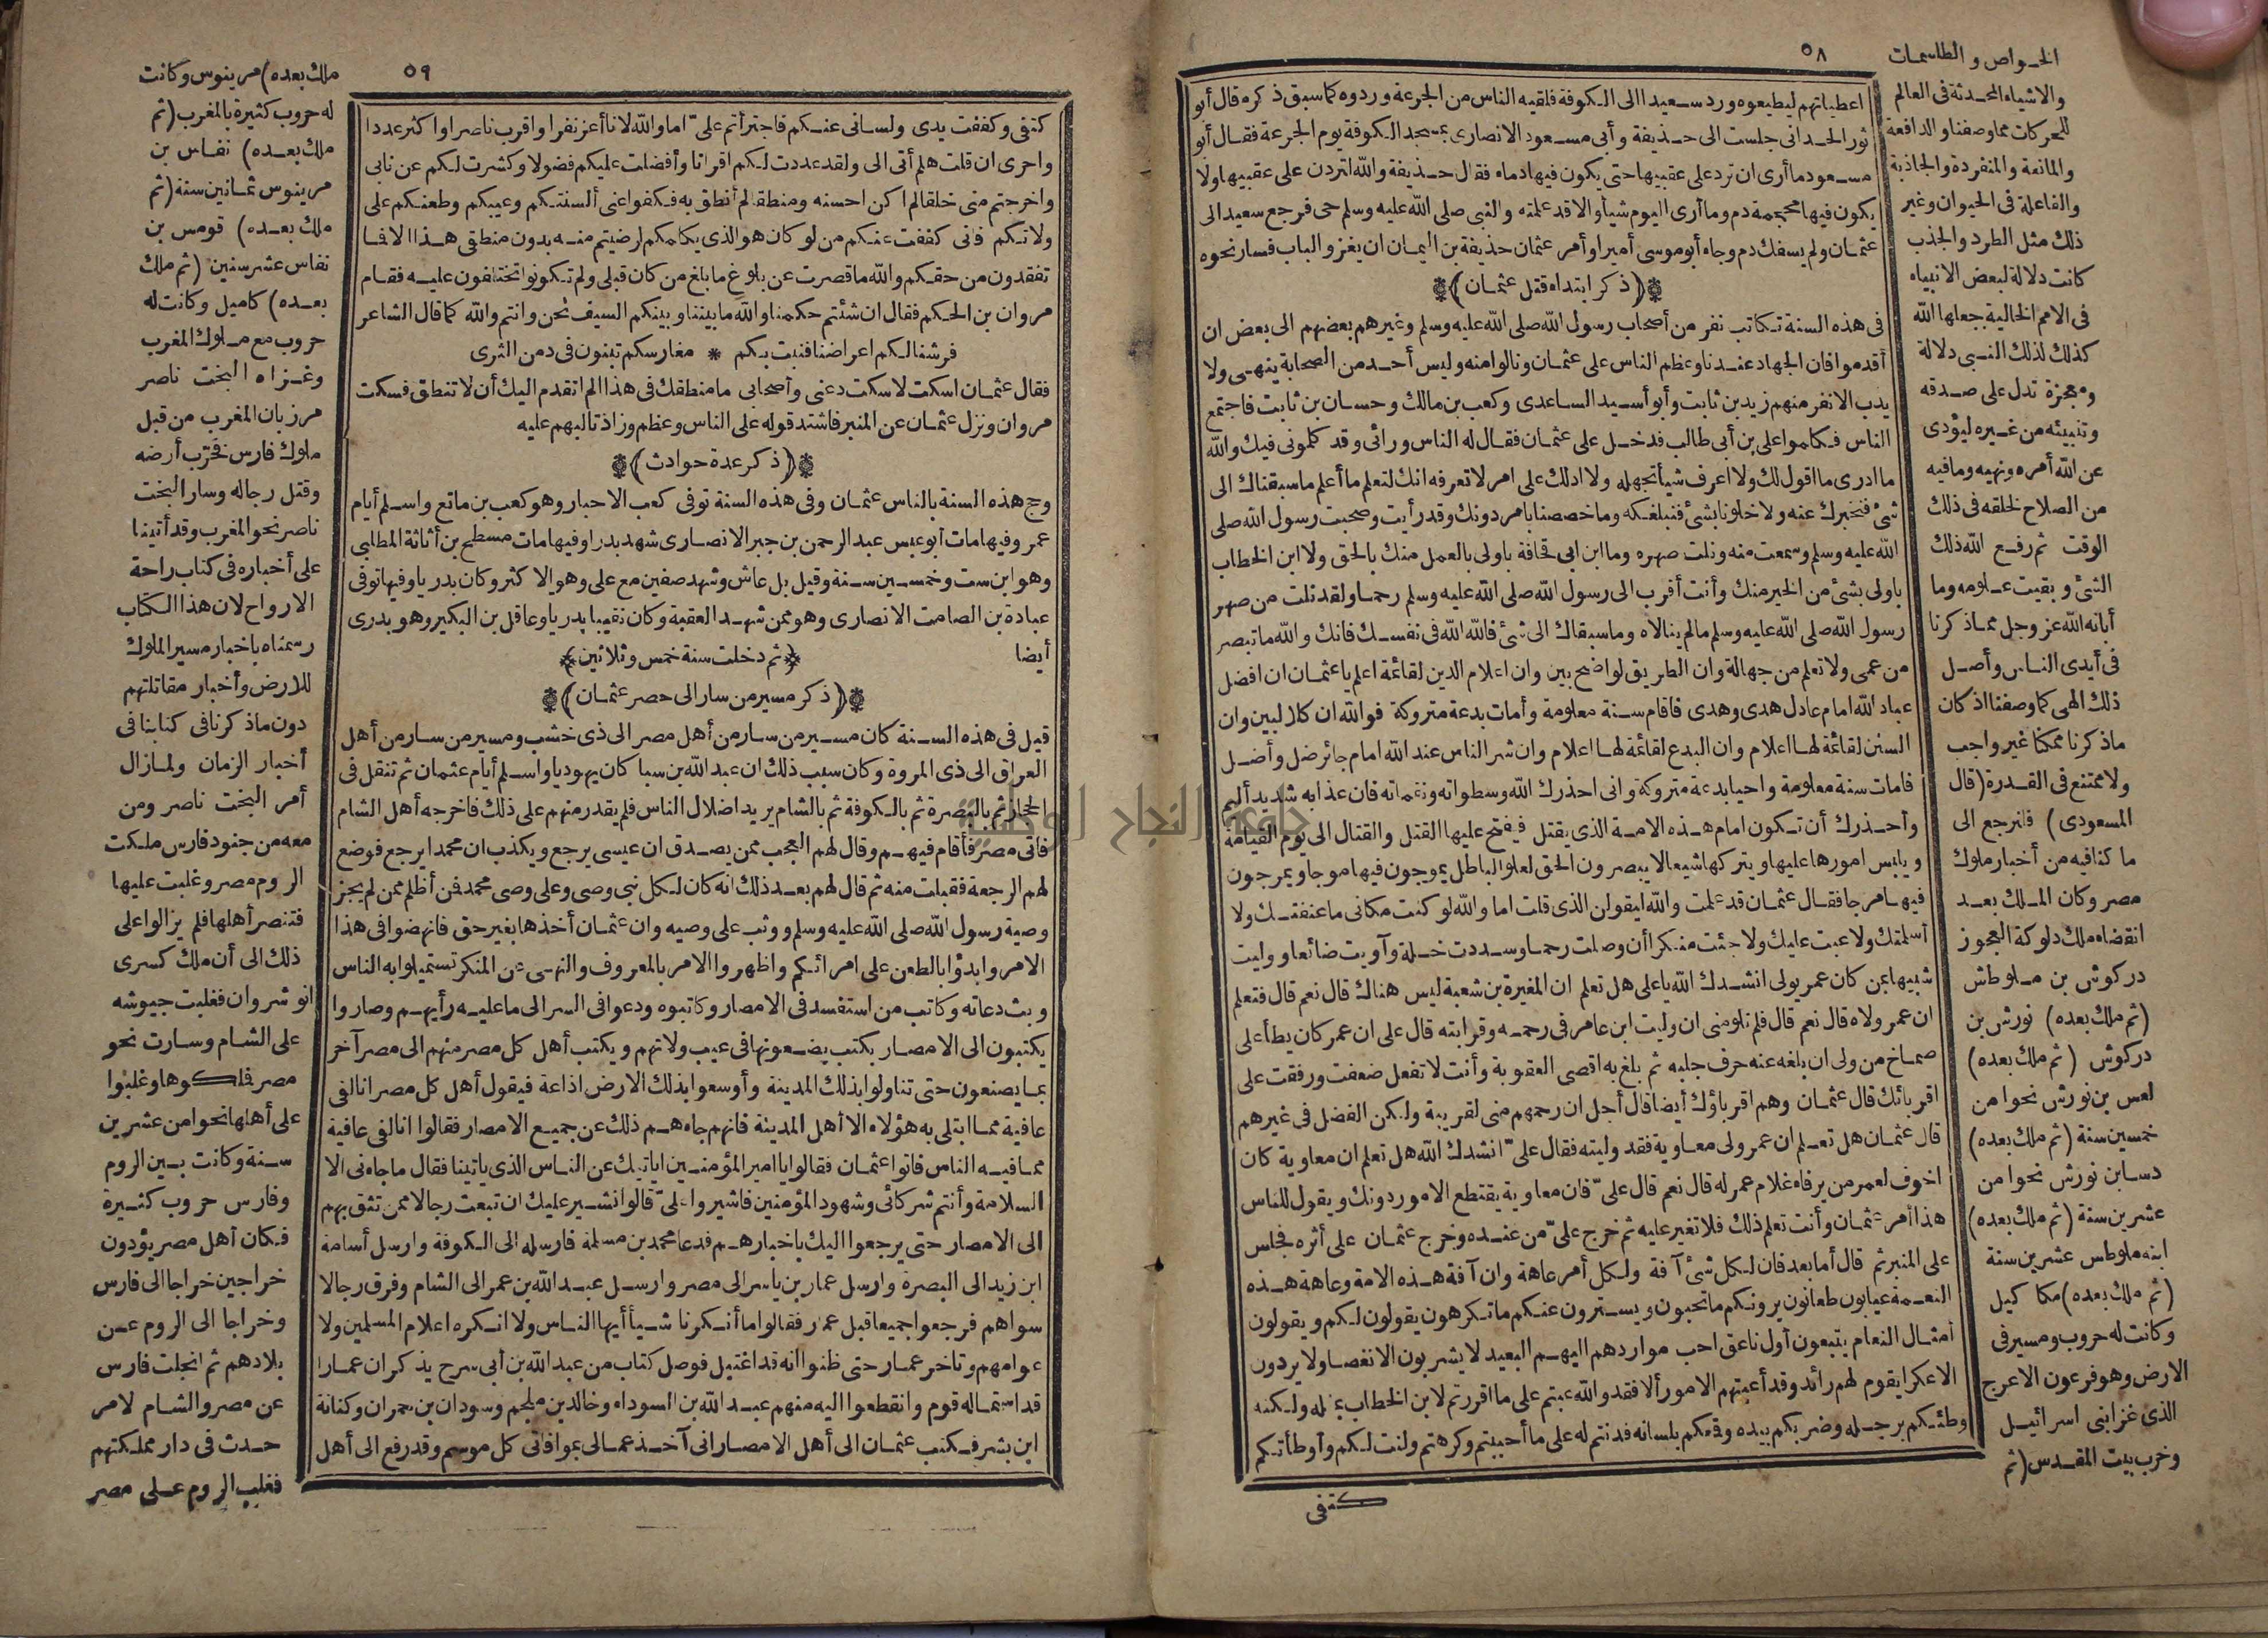 ٥٨
اعطياتهم ليطيعوه ورد سعيدا الى الكوفة فلقيه الناس من الجرعة وردوه كما سبق ذكره قال أبو
ثور الحدانى جلست الى حذيفة وأبى مسعود الانصارى بمسجد الكوفة يوم الجرعة فقال أبو
مسعود ما أرى ان ترد على عقبيها حتى يكون فيها دماء فقال حذيفة والله لتردن على عقبيها ولا
يكون فيها محجمة دم وما أرى اليوم شيأ والا قد علمته والنبى صلى الله عليه وسلم حى فرجع سعيد الى
عثمان ولم يسفك دم وجاء أبو موسى أميرا وأمر عثمان حذيفة بن اليمان ان يغزو الباب فسار نحوه
(ذكر ابتداء قتل عثمان)
فى هذه السنة تكاتب نفر من أصحاب رسول الله صلى الله عليه وسلم وغيرهم بعضهم الى بعض ان
أقدموا فان الجهاد عندنا وعظم الناس على عثمان ونالوا منه وليس أحد من الصحابة ينهى ولا
يذب الا نفر منهم زيد بن ثابت وأبو أسيد الساعدى وكعب بن مالك وحسان بن ثابت فاجتمع
الناس فكلموا على بن أبى طالب فدخل على عثمان فقال له الناس ورائى وقد كلمونى فيك والله
ما ادرى ما اقول لك ولا اعرف شيأ تجهله ولا ادلك على امر لا تعرفه انك لتعلم ما أعلم ما سبقناك الى
شئ فنخبرك عنه ولا خلونا بشئ فنبلغكه وما خصصنا بامر دونك وقد رأيت وصحبت رسول الله صلى
الله عليه وسلم وسمعت منه ونلت صهره وما ابن ابى قحافة باولى بالعمل منك بالحق ولا ابن الخطاب
باولى بشئ من الخير منك وأنت أقرب الى رسول الله صلى الله عليه وسلم رحما ولقد نلت من صهر
رسول الله صلى الله عليه وسلم ما لم ينالاه وما سبقاك الى شئ فالله الله فى نفسك فانك والله ما تبصر
من عمى ولا تعلم من جهالة وان الطريق لواضح بين وان اعلام الدين لقائمة اعلم يا عثمان ان افضل
عباد الله امام عادل هدى وهدى فاقام سنة معلومة وأمات بدعة متروكة فوالله ان كلا لبين وان
السنن لقائمة لها اعلام وان البدع لقائمة لها اعلام وان شر الناس عند الله امام جائر ضل وأضل
فامات سنة معلومة واحيا بدعة متروكة وانى احذرك الله وسطواته ونقماته فان عذابه شديد أليم
وأحذرك أن تكون امام هذه الامة الذى يقتل فيفتح عليها القتل والقتال الى يوم القيامة
ويلبس امورها عليها ويتركها شيعا لا يبصرون الحق لعلو الباطل يموجون فيها موجا ويمرجون
فيها مرجا فقال عثمان قد علمت والله ليقولن الذى قلت اما والله لو كنت مكانى ما عنفتك ولا
أسلمتك ولا عبت عليك ولا جئت منكرا أن وصلت رحما وسددت خلة وآويت ضائعا ووليت
شبيها بمن كان عمر يولى انشدك الله يا على هل تعلم ان المغيرة بن شعبة ليس هناك قال نعم قال فتعلم
ان عمر ولاه قال نعم قال فلم تلومنى ان وليت ابن عامر فى رحمه وقرابته قال على ان عمر كان يطأ على
صماخ من ولى ان بلغه عنه حرف جلبه ثم بلغ به اقصى العقوبة وأنت لا تفعل ضعفت ورفقت على
اقربائك قال عثمان وهم اقرباؤك أيضا قال أجل ان رحمهم منى لقريبة ولكن الفضل فى غيرهم
قال عثمان هل تعلم ان عمر ولى معاوية فقد وليته فقال علىّ انشدك الله هل تعلم ان معاوية كان
اخوف لعمر من يرفاء غلام عمر له قال نعم قال علىّ فان معاوية يقتطع الامور دونك ويقول للناس
هذا أمر عثمان وأنت تعلم ذلك فلا تغير عليه ثم خرج علىّ من عنده وخرج عثمان على أثره فجلس
على المنبر ثم قال أما بعد فان لكل شئ آفة ولكل أمر عاهة وان آفة هذه الامة وعاهة هذه
النعمة عيابون طعانون يرونكم ما تحبون ويسترون عنكم ما تكرهون يقولون لكم ويقولون
أمثال النعام يتبعون أول ناعق احب مواردهم اليهم البعيد لا يشربون الا نغصا ولا يردون
الا عكرا يقوم لهم رائد وقد أعيتهم الامور ألا فقد والله عبتم على ما اقررتم لابن الخطاب بمثله ولكنه
وطئكم برجله وضربكم بيده وقمعكم بلسانه فدنتم له على ما أحببتم وكرهتم ولنت لكم وأوطأتكم
كتفى
الخواص والطلسمات
والاشياء المحدثة فى العالم
للحركات مما وصفنا والدافعة
والمانعة والمنفردة والجاذبة
والفاعلة فى الحيوان وغير
ذلك مثل الطرد والجذب
كانت دلالة لبعض الانبياء
فى الامم الخالية جعلها الله
كذلك لذلك النبى دلالة
ومعجزة تدل على صدقه
وتنبيئه من غيره ليؤدى
عن الله أمره ونهيه وما فيه
من الصلاح لخلقه فى ذلك
الوقت ثم رفع الله ذلك
الشئ وبقيت علومه وما
أبانه الله عز وجل مما ذكرنا
فى أيدى الناس وأصل
ذلك الهى كما وصفنا اذ كان
ما ذكرنا ممكنا غير واجب
ولا ممتنع فى القدرة (قال
المسعودى) فلنرجع الى
ما كنا فيه من أخبار ملوك
مصر وكان الملك بعد
انقضاء ملك دلوكة العجوز
دركوش بن ملوطش
(ثم ملك بعده) نورش بن
دركوش (ثم ملك بعده)
لعس بن نورش نحوا من
خمسين سنة (ثم ملك بعده)
دسا بن نورش نحوا من
عشرين سنة (ثم ملك بعده)
ابنه ملوطس عشرين سنة
(ثم ملك بعده) مكاكيل
وكانت له حروب ومسير فى
الارض وهو فرعون الاعرج
الذى غزا بنى اسرائيل
وخرب بيت المقدس (ثم
٥٩
كتفى وكففت يدى ولسانى عنكم فاجترأتم علىّ اما والله لانا أعز نفرا واقرب ناصرا واكثر عددا
واحرى ان قلت هلم أتى الى ولقد عددت لكم اقرانا وأفضلت عليكم فضولا وكشرت لكم عن نابى
واخرجتم منى خلقا لم اكن احسنه ومنطقا لم أنطق به فكفوا عنى ألسنتكم وعيبكم وطعنكم على
ولاتكم فانى كففت عنكم من لو كان هو الذى يكلمكم لرضيتم منه بدون منطقى هذا الا فما
تفقدون من حقكم والله ما قصرت عن بلوغ ما بلغ من كان قبلى ولم تكونوا تختلفون عليه فقام
مروان بن الحكم فقال ان شئتم حكمنا والله ما بيننا وبينكم السيف نحن وانتم والله كما قال الشاعر
فرشنا لكم اعراضنا فنبت بكم * مغارسكم تبنون فى دمن الثرى
فقال عثمان اسكت لا سكت دعنى وأصحابى ما منطقك فى هذا الم اتقدم اليك أن لا تنطق فسكت
مروان ونزل عثمان عن المنبر فاشتد قوله على الناس وعظم وزاد تألبهم عليه
(ذكر عدة حوادث)
وحج هذه السنة بالناس عثمان وفى هذه السنة توفى كعب الاحبار وهو كعب بن ماتع واسلم أيام
عمر وفيها مات أبو عبس عبد الرحمن بن جبر الانصارى شهد بدرا وفيها مات مسطح بن أثاثة المطلبى
وهو ابن ست وخمسين سنة وقيل بل عاش وشهد صفين مع على وهو الاكثر وكان بدريا وفيها توفى
عبادة بن الصامت الانصارى وهو ممن شهد العقبة وكان نقيبا بدريا وعاقل بن البكير وهو بدرى
أيضا
(ثم دخلت سنة خمس وثلاثين)
(ذكر مسير من سار الى حصر عثمان)
قيل فى هذه السنة كان مسير من سار من أهل مصر الى ذى خشب ومسير من سار من أهل
العراق الى ذى المروة وكان سبب ذلك ان عبد الله بن سبا كان يهوديا واسلم أيام عثمان ثم تنقل فى
الحجاز ثم بالبصرة ثم بالكوفة ثم بالشام يريد اضلال الناس فلم يقدر منهم على ذلك فاخرجه أهل الشام
فاتى مصر فأقام فيهم وقال لهم العجب ممن يصدق ان عيسى يرجع ويكذب ان محمدا يرجع فوضع
لهم الرجعة فقبلت منه ثم قال لهم بعد ذلك انه كان لكل نبى وصى وعلى وصى محمد فمن أظلم ممن لم يجز
وصية رسول الله صلى الله عليه وسلم ووثب على وصيه وان عثمان أخذها بغير حق فانهضوا فى هذا
الامر وابدؤا بالطعن على امرائكم واظهروا الامر بالمعروف والنهى عن المنكر تستميلوا به الناس
وبث دعاته وكاتب من استفسد فى الامصار وكاتبوه ودعوا فى السر الى ما عليه رأيهم وصاروا
يكتبون الى الامصار بكتب يضعونها فى عيب ولاتهم ويكتب أهل كل مصر منهم الى مصر آخر
بما يصنعون حتى تناولوا بذلك المدينة وأوسعوا بذلك الارض اذاعة فيقول أهل كل مصر انا لفى
عافية مما ابتلى به هؤلاء الا أهل المدينة فانهم جاءهم ذلك عن جميع الامصار فقالوا انا لفى عافية
مما فيه الناس فاتوا عثمان فقالوا يا امير المؤمنين اياتيك عن الناس الذى ياتينا فقال ما جاءنى الا
السلامة وأنتم شركائى وشهود المؤمنين فاشيروا علىّ قالوا نشير عليك ان تبعث رجالا ممن تثق بهم
الى الامصار حتى يرجعوا اليك باخبارهم فدعا محمد بن مسلمة فارسله الى الكوفة وارسل أسامة
ابن زيد الى البصرة وارسل عمار بن ياسر الى مصر وارسل عبد الله بن عمر الى الشام وفرق رجالا
سواهم فرجعوا جميعا قبل عمار فقالوا ما أنكرنا شيأ أيها الناس ولا انكره اعلام المسلمين ولا
عوامهم وتاخر عمار حتى ظنوا انه قد اغتيل فوصل كتاب من عبد الله بن أبى سرح يذكر ان عمارا
قد استماله قوم وانقطعوا اليه منهم عبد الله بن السوداء وخالد بن ملجم وسودان بن حمران وكنانة
ابن بشر فكتب عثمان الى أهل الامصار انى آخذ عمالى بموافاتى كل موسم وقد رفع الى أهل
ملك بعده) مرينوس وكانت
له حروب كثيرة بالمغرب (ثم
ملك بعده) نفاس بن
مرينوس ثمانين سنة (ثم
ملك بعده) قومس بن
نفاس عشر سنين (ثم ملك
بعده) كاميل وكانت له
حروب مع ملوك المغرب
وغزاه البخت ناصر
مرزبان المغرب من قبل
ملوك فارس فخرّب أرضه
وقتل رجاله وسار البخت
ناصر نحو المغرب وقد أتينا
على أخباره فى كتاب راحة
الارواح لان هذا الكتاب
رسمناه باخبار مسير الملوك
للارض وأخبار مقاتلتهم
دون ماذكرنا فى كتابنا فى
أخبار الزمان ولما زال
أمر البخت ناصر ومن
معه من جنود فارس ملكت
الروم مصر وغلبت عليها
فتنصر أهلها فلم يزالوا على
ذلك الى أن ملك كسرى
انوشروان فغلبت جيوشه
على الشام وسارت نحو
مصر فملكوها وغلبوا
على أهلها نحوا من عشرين
سنة وكانت بين الروم
وفارس حروب كثيرة
فكان أهل مصر يؤدون
خراجين خراجا الى فارس
وخراجا الى الروم عن
بلادهم ثم انجلت فارس
عن مصر والشام لامر
حدث فى دار مملكتهم
فغلب الروم على مصر
جامعة النجاح الوطنية